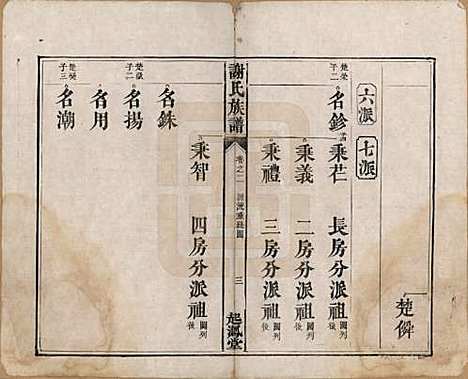 六派
七派
楚僢
楚榮
子二
名鉁
秉芢 長房分派祖 圖列後
秉義 二房分派祖 圖列後
秉禮 三房分派祖 圖列後
謝氏族譜
卷之二
三
起鳳堂
秉智 四房分派祖 圖列後
名銖
子二
名揚
名用
子三
名潮